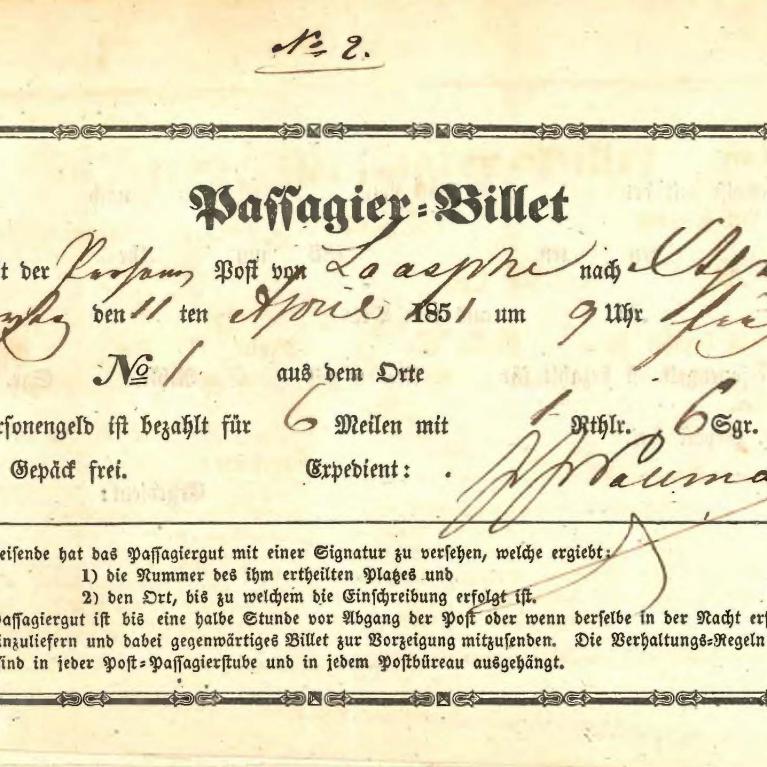 № 2.
Passagier-Billet
t der Personen Post von Laasphe nach
den 11 ten April 1851 um 9 Uhr frü
№ 1 aus dem Orte
rsonengeld ist bezahlt für 6 Meilen mit 1 Rthlr. 6 Sgr.
Gepäck frei. Expedient:
eisende hat das Passagiergut mit einer Signatur zu versehen, welche ergiebt:
1) die Nummer des ihm ertheilten Platzes und
2) den Ort, bis zu welchem die Einschreibung erfolgt ist.
assagiergut ist bis eine halbe Stunde vor Abgang der Post oder wenn derselbe in der Nacht erf
inzuliefern und dabei gegenwärtiges Billet zur Vorzeigung mitzusenden. Die Verhaltungs-Regeln
sind in jeder Post-Passagierstube und in jedem Postbüreau ausgehängt.